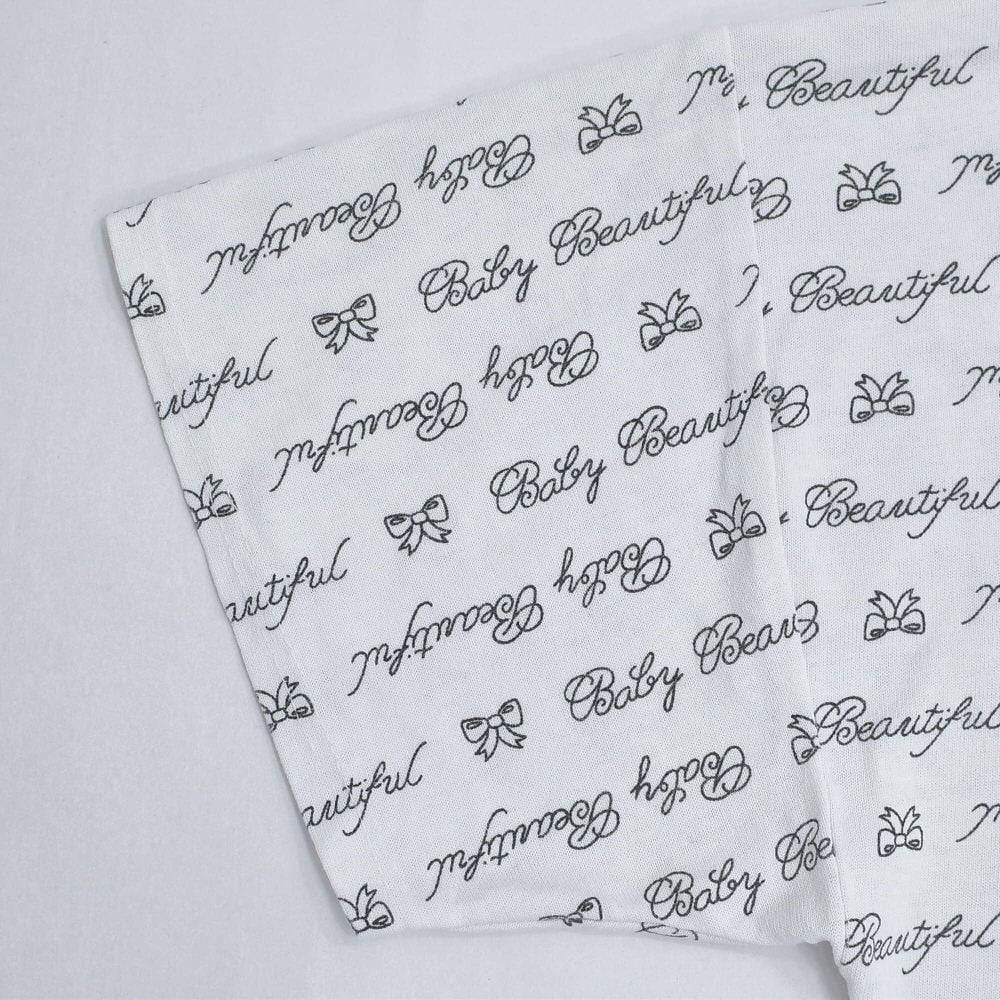 Beautiful
Baby Beautiful
Baby Beautiful
Beautiful
Baby Beautiful
Baby Beautiful
Beautiful
Baby Beautiful
Baby
Beautiful
Baby Beautiful
Baby
Beautiful